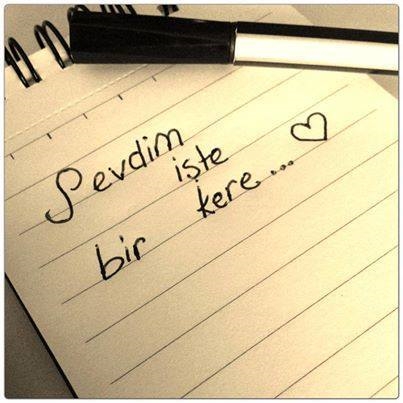 Sevdim işte
bir kere... ♡